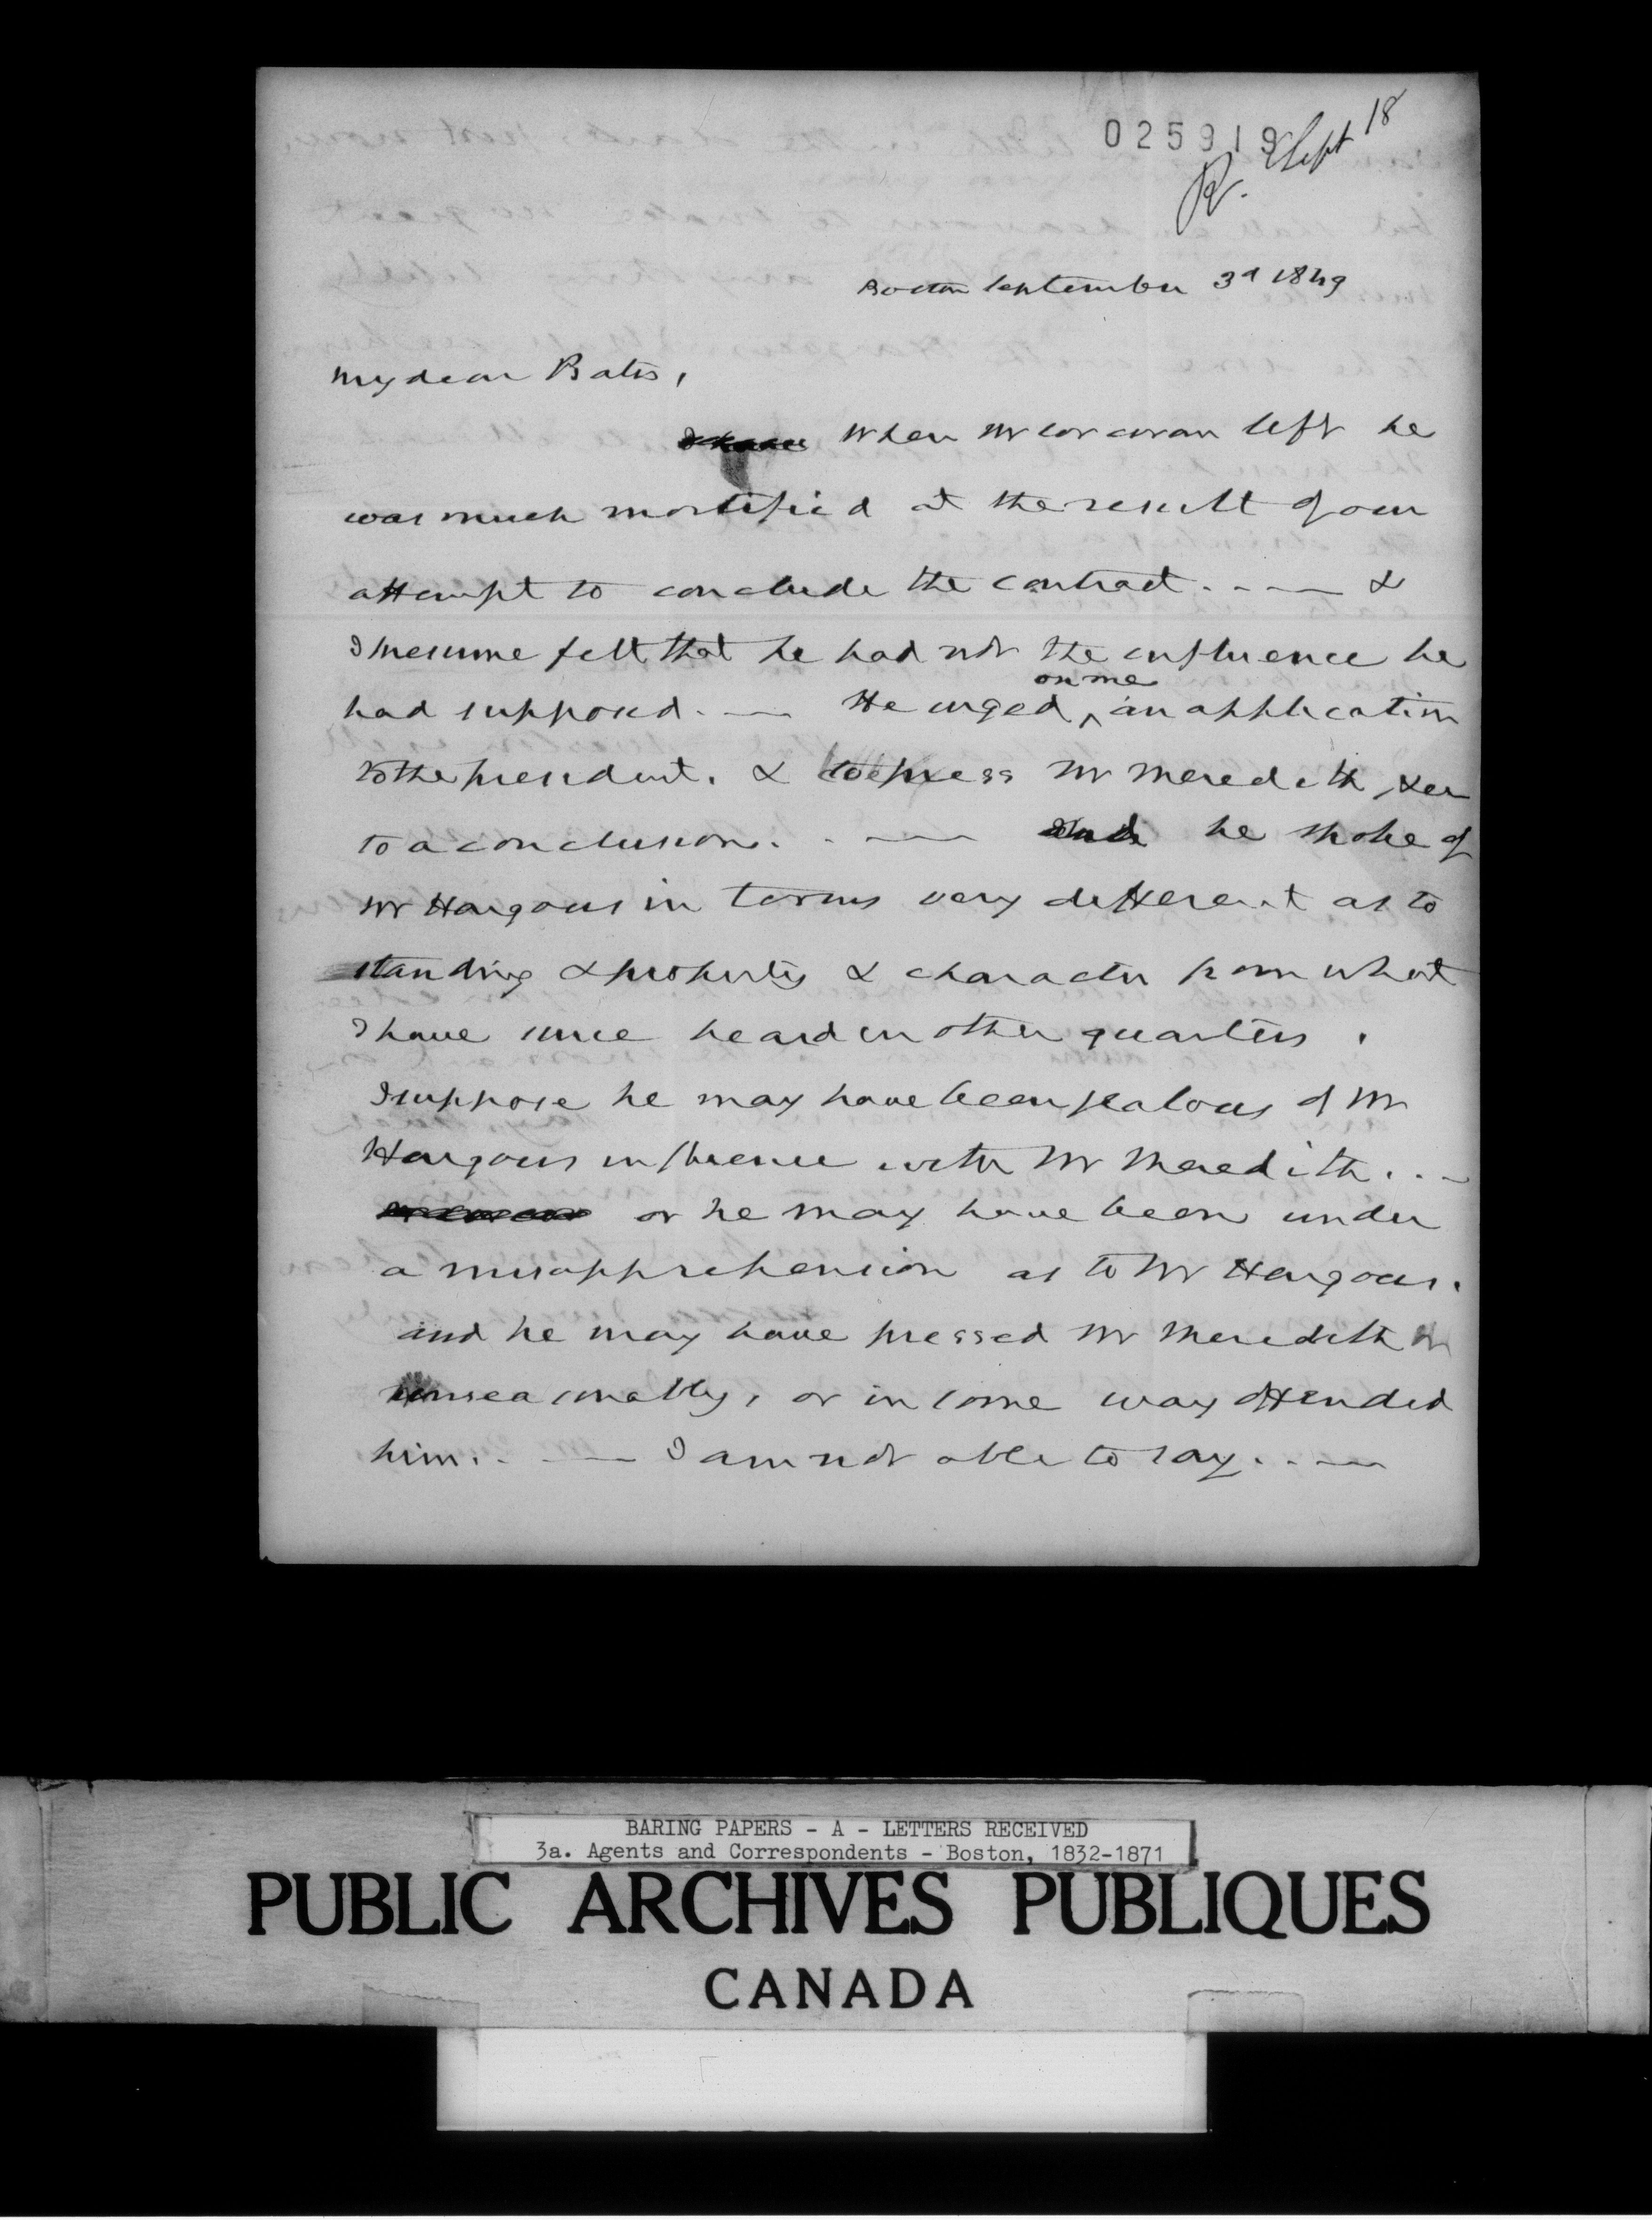 025919
R. Sept 18
Boston September 3d 1849
My dear Bates,
When Mr Corcoran left he
was much mortified at the result of our
attempt to conclude the contract. - - — &
I presume felt that he had not the influence he
on me
had supposed. — He urged ^ an application
to the president. & to press Mr Meredith,
to a conclusion. . — he spoke of
Mr Hargous in terms very different as to
standing & property & character from what
I have since heard in other quarters.
I suppose he may have been jealous of Mr
Hargous influence with Mr Meredith. . -
or he may have been under
a misapprehension as to Mr Hargous.
and he may have pressed Mr Meredith
unseasonably, or in some way offended
him. . - — I am not able to say. . —
BARING PAPERS - A - LETTERS RECEIVED
3a. Agents and Correspondents - Boston, 1832-1871
PUBLIC ARCHIVES PUBLIQUES
CANADA